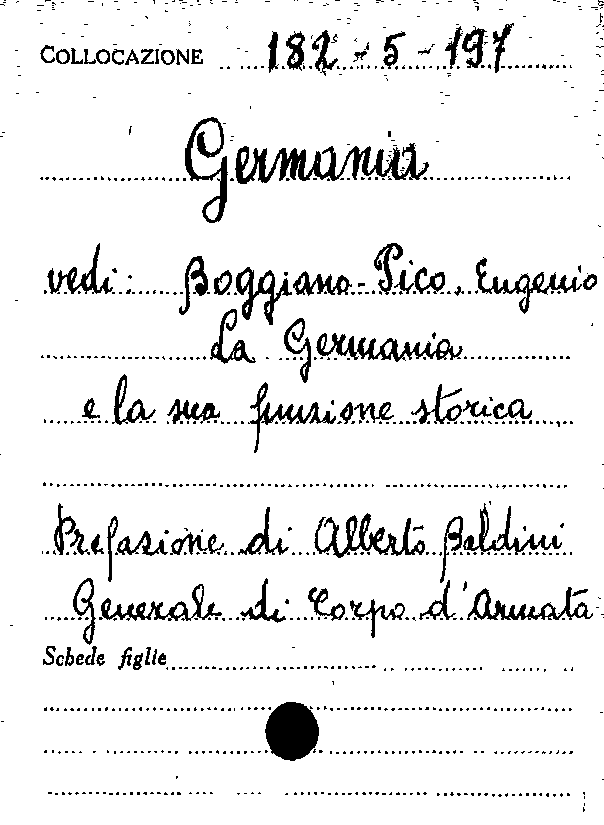 COLLOCAZIONE 182-5-197
Germania
vedi: Boggiano-Pico, Eugenio
La Germania
e la sua funzione storica
Prefazione di Alberto Baldini
Generale di Corpo d'Armata
Schede figlie